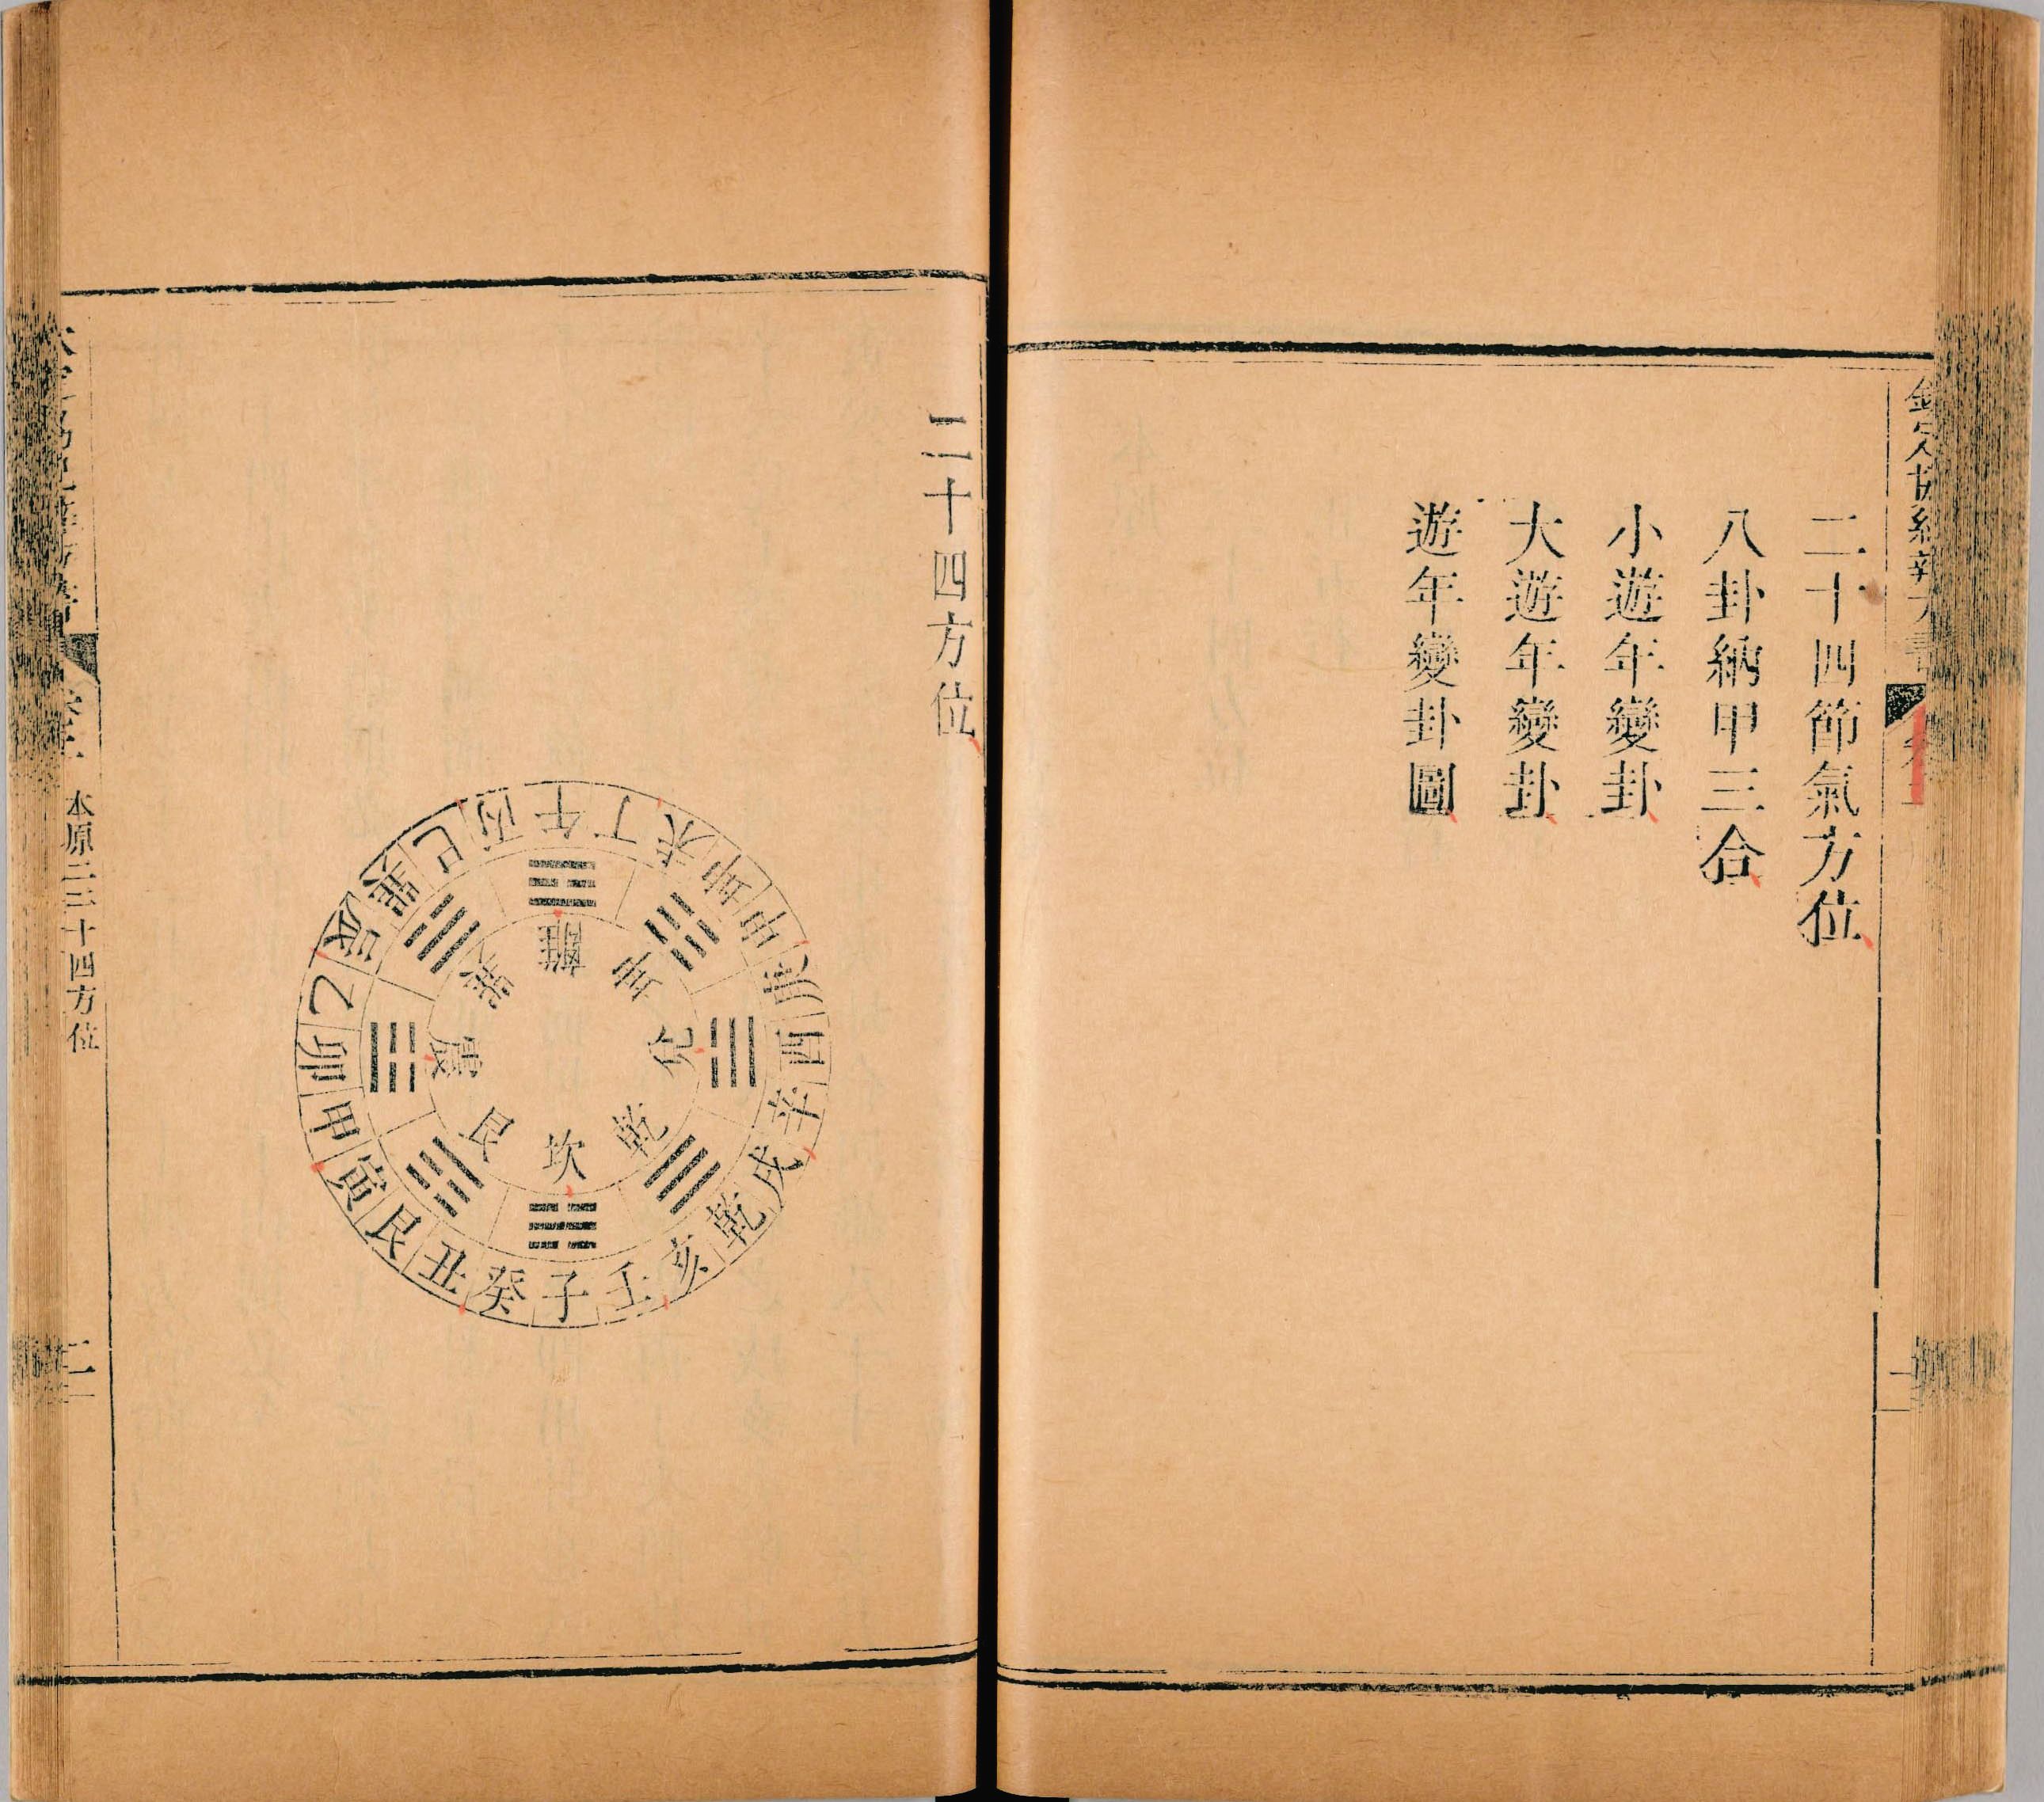 欽定協紀辨方書
二十四節氣方位
八卦納甲三合
小遊年變卦
大遊年變卦
遊年變卦圖
二十四方位
午丁未坤申庚酉辛戌乾亥壬子癸丑艮寅甲卯乙辰巽巳丙
離坤兌乾坎艮震巽
本原二 二十四方位
二